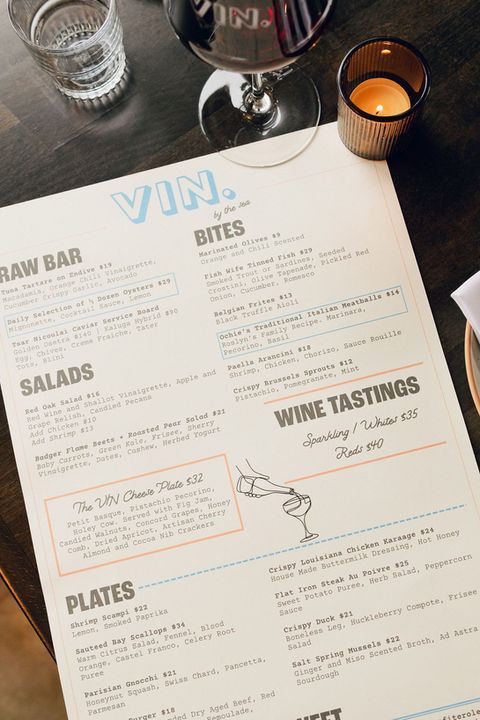 VIN.
VIN.
by the sea
RAW BAR
Tuna Tartare on Endive $19
Macadamia, Orange Chili Vinaigrette,
Cucumber Crispy Garlic, Avocado
Daily Selection of ½ Dozen Oysters $29
Mignonette, Cocktail Sauce, Lemon
Tsar Nicoulai Caviar Service Board
Golden Osetra $140 | Kaluga Hybrid $90
Egg, Chives, Creme Fraiche, Tater
Tots, Blini
SALADS
Red Oak Salad $16
Red Wine and Shallot Vinaigrette, Apple and
Grape Relish, Candied Pecans
Add Chicken $10
Add Shrimp $13
Badger Flame Beets + Roasted Pear Salad $21
Baby Carrots, Green Kale, Frisee, Sherry
Vinaigrette, Dates, Cashew, Herbed Yogurt
The VIN Cheese Plate $32
Petit Basque, Pistachio Pecorino,
Holey Cow. Served with Fig Jam,
Candied Walnuts, Concord Grapes, Honey
Comb, Dried Apricot. Artisan Cherry
Almond and Cocoa Nib Crackers
BITES
Marinated Olives $9
Orange and Chili Scented
Fish Wife Tinned Fish $29
Smoked Trout or Sardines, Seeded
Crostini, Olive Tapenade, Pickled Red
Onion, Cucumber, Romesco
Belgian Frites $13
Black Truffle Aioli
Ochie's Traditional Italian Meatballs $14
Roslyn's Family Recipe. Marinara,
Pecorino, Basil
Paella Arancini $18
Shrimp, Chicken, Chorizo, Sauce Rouille
Crispy Brussels Sprouts $12
Pistachio, Pomegranate, Mint
WINE TASTINGS
Sparkling / Whites $35
Reds $40
PLATES
Shrimp Scampi $22
Lemon, Smoked Paprika
Sauteed Bay Scallops $34
Warm Citrus Salad, Fennel, Blood
Orange, Castel Franco, Celery Root
Puree
Parisian Gnocchi $21
Honeynut Squash, Swiss Chard, Pancetta,
Parmesan
Burger $18
Dry Aged Beef, Red
Remoulade,
Crispy Louisiana Chicken Karaage $24
House Made Buttermilk Dressing, Hot Honey
Flat Iron Steak Au Poivre $25
Sweet Potato Puree, Herb Salad, Peppercorn
Sauce
Crispy Duck $21
Boneless Leg, Huckleberry Compote, Frisee
Salad
Salt Spring Mussels $22
Ginger and Miso Scented Broth, Ad Astra
Sourdough